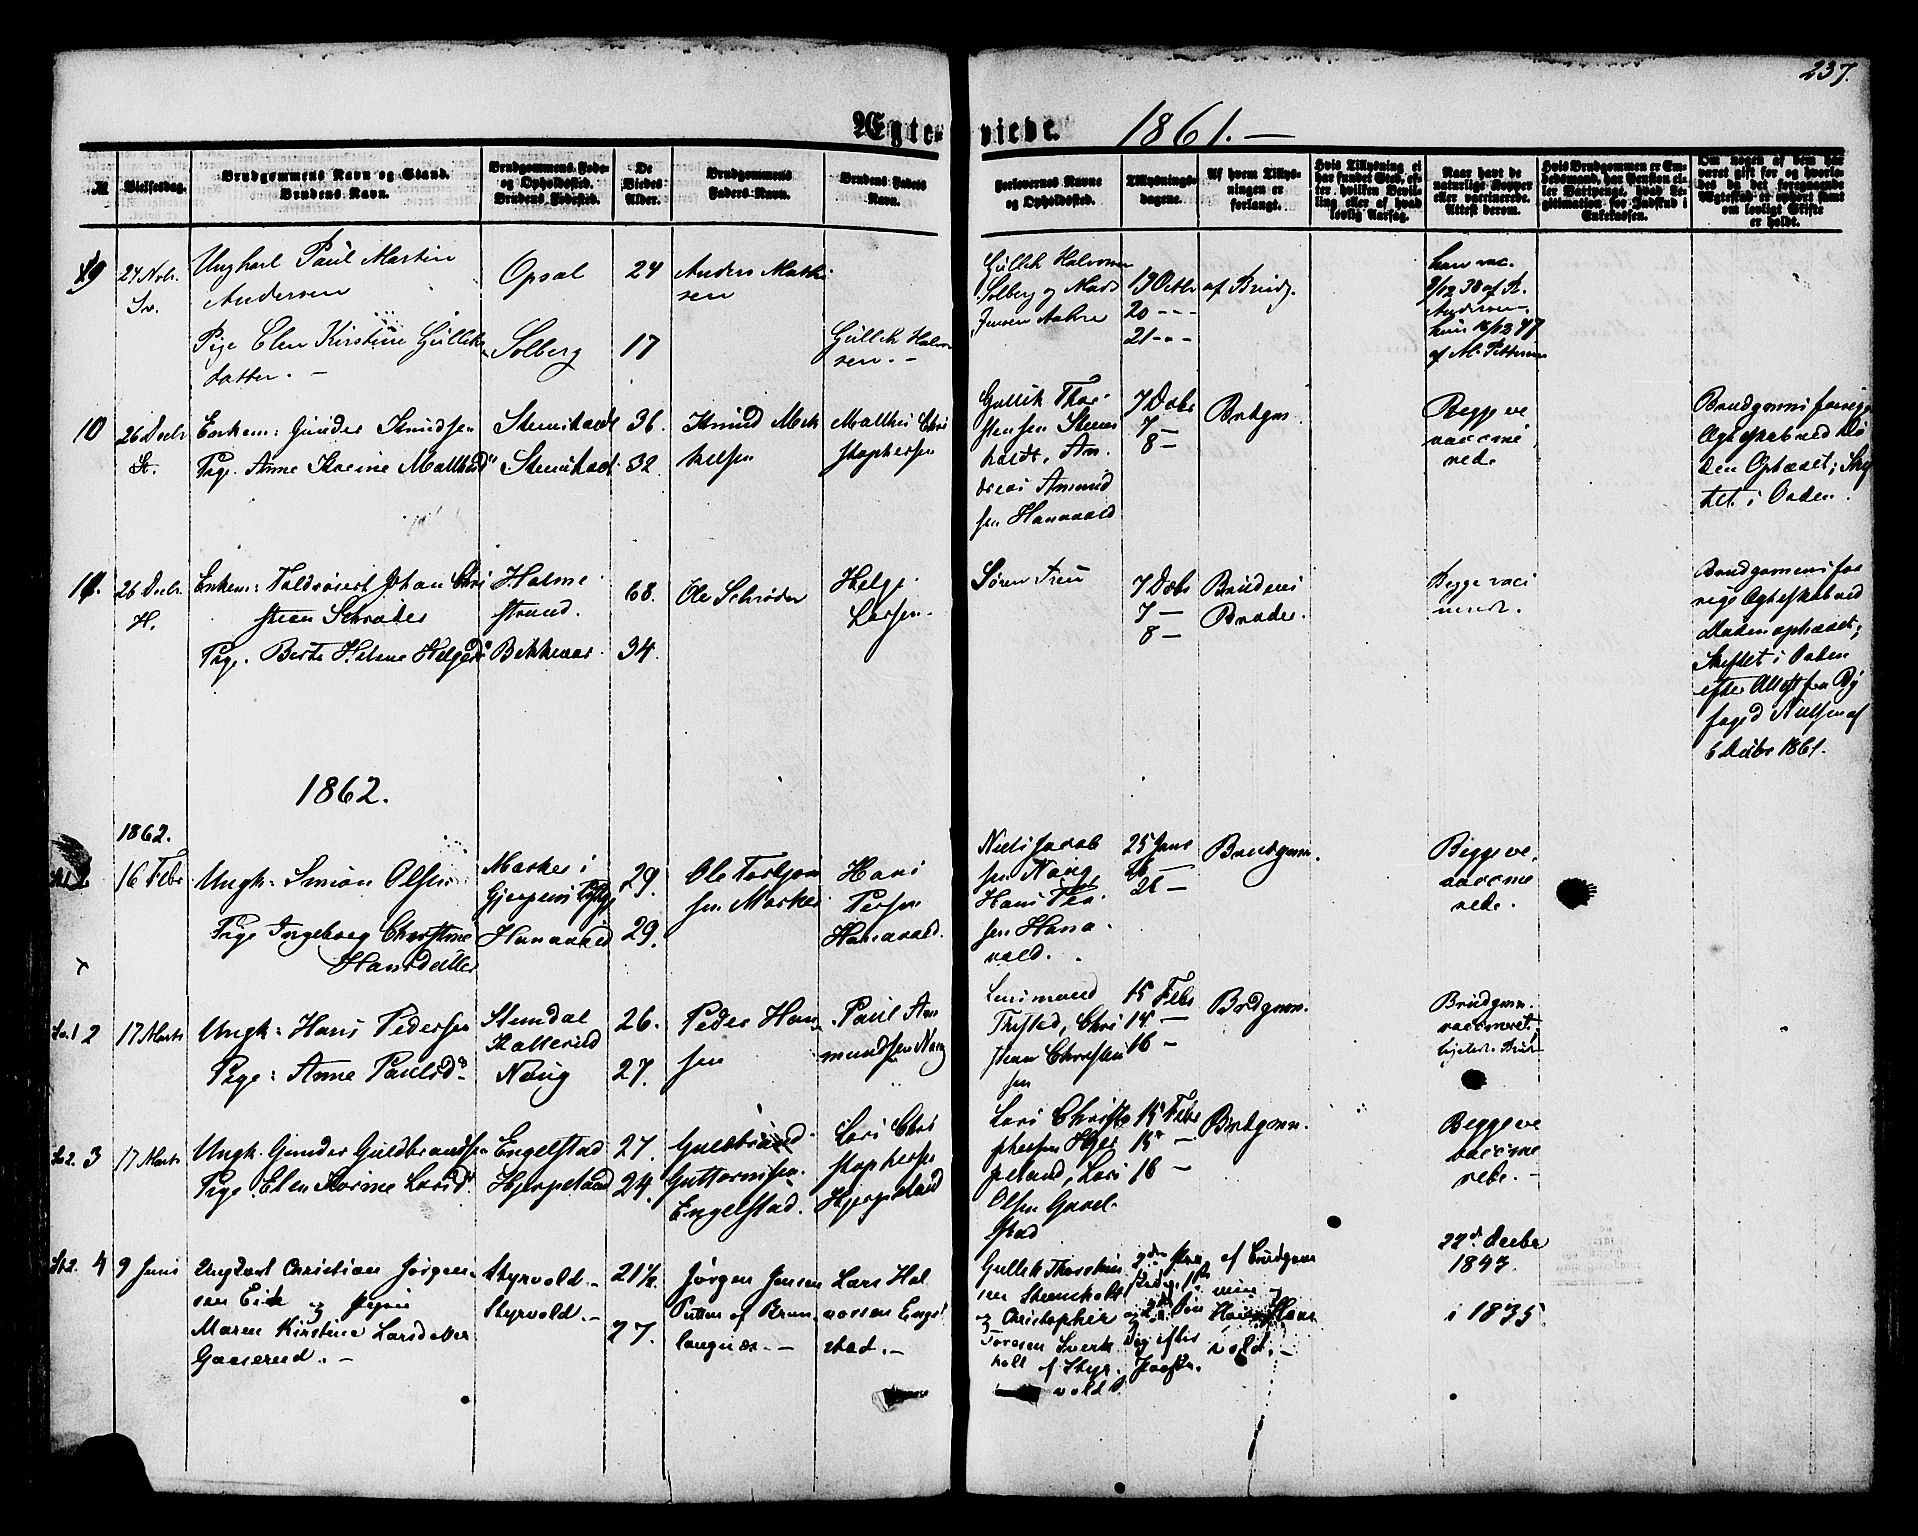 237.
Ægte viede. 1861.—
№
Vielsesdag.
Brudgommens Navn og Stand.
Brudens Navn.
Brudgommens Føde-
og Opholdssted.
Brudens Fødested.
De
Viedes
Alder.
Brudgommens
Faders Navn.
Brudens Faders
Navn.
Forlovernes Navne
og Opholdssted.
Tillysnings-
dagene.
Af hvem Tillys-
ningen er
forlangt.
Hvis Tillysning ei
har fundet Sted, ef-
ter hvilken Bevil-
ling eller af hvad
lovlig Aarsag.
Naar havt de
naturlige Kopper
eller vaccinerede.
Attest derom.
Hvis Brudgommen er Em-
bedsmand, har Pension el-
ler Vartpenge, hvad Le-
gitimation for Indskud i
Enkekassen.
Om nogen af dem har
været gift før og hvorle-
des da det foregaaende
Ægteskab er ophørt samt
om lovligt Skifte
er holdt.
9
24 Novbr.
Sv.
Ungkarl Paul Martin
Andersen
Opsal
24
Anders Mathi-
sen
Gullik Halvorsen
Solberg og Mads
Jensen Aahre
19 Octbr
20 - -
21 - -
af Brudg.
han vac.
9/12 38 af R.
Andersen
hun 16/12 47
af M. Pettersen
Pige Elen Kirstine Gulliks-
datter. —
Solberg
17
Gullik Halvor-
sen. —
10
26 Decbr
St.
Enkem: Gunder Knudsen
Pige. Anne Karine Mathisd.
Steinsholt
Steinsholt
36.
32.
Knud Mik-
kelsen
Mathis Chri-
stophersen
Gullik Thor-
stensen Steins-
holdt, An-
dreas Amund-
sen Hanavald
7 Decbr
7 —
8 —
Brudgm.
Begge va-
accine-
rede.
Brudgoms forrige
Ægteskab ved Dø-
den Ophævet; Skif-
tet i Orden.
11.
26 Decbr.
H.
Enkem: Toldrorsert Johan Chri-
stian Schrøder
Pige. Berte Helene Helgesd.
Holme-
strand.
Bekkevar.
68.
34.
Ole Schrøder
Helge
Larsen.
Søren Freu
7 Decbr
7 —
8 —
Brudens
Broder.
Begge vaci-
nerede.
Brudgommens for-
rige Ægteskab ved
Døden ophævet;
Skiftet i Orden
efter Attest fra By-
foged Nielsen af
6 Decbr 1861.
1862.
1862.
16 Febr
Ungk: Simon Olsen
Pige Ingeborg Christine
Hansdatter
Marker i
Gjerpens Prstgj.
Hanavald
29.
29.
Ole Torbjørn-
sen Marker
Hans
Persen
Hanavald.
Niels Jacob-
sen Nøug,
Hans Per-
sen Hana-
vald.
25 Janr
26 —
26 —
Brudgmn.
Begge va-
accine-
rede.
2
17 Marts
Ungk: Hans Pedersen
Pige: Anne Paulsd.
Stendal
Kallerød
Nøug
26.
27.
Peder Han-
sen
Paul Am-
mundsen Nøug
Lensmand
Thysted, Chri-
stian Christen-
sen
15 Febr
15 —
16 —
Brdgmn.
Brudgmn.
vaccineret,
3
17 Marts
Ungk. Gunder Guldbrandsen
Pige. Elen Karine Larsd.
Engelstad
Hjerpetand
27.
24.
Guldbrand
Guttormsen
Engelstad.
Lars Chri-
stophersen
Hjerpetand
Lars Christo-
phersen Hjer-
petand, Lars
Olsen Gavel-
stad
15 Febr
15 —
16 —
Brdgmn.
Begge va-
accine-
rede.
4
9 Juni
Ungkarl Christian Jørgen-
sen Eik og Pigen
Maren Kirstine Larsdatter
Gaaserud. —
Styrvold. —
Styrvold. —
21½
27.
Jørgen Jensen
Putten af Brun-
langnæs. —
Lars Hal-
vorsen Engel-
stad. —
Gullik Thorsten-
sen Steinsholt
og Christopher
Toresen Sverk-
holt af Styr-
vold.
af Brudgom-
men
vold. —
22d. Decbr
1843.
i 1835